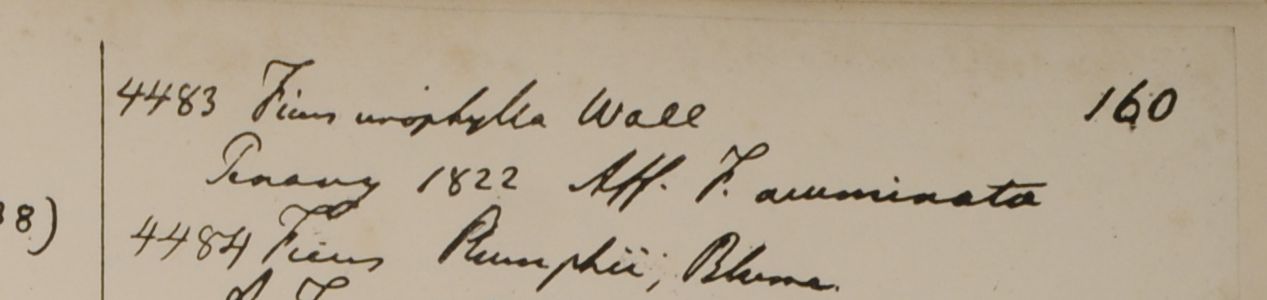 4483 Ficus urophylla Wall 160
Penang 1822 Aff. F. acuminata
8)
4484 Ficus Rumphii, Blume.